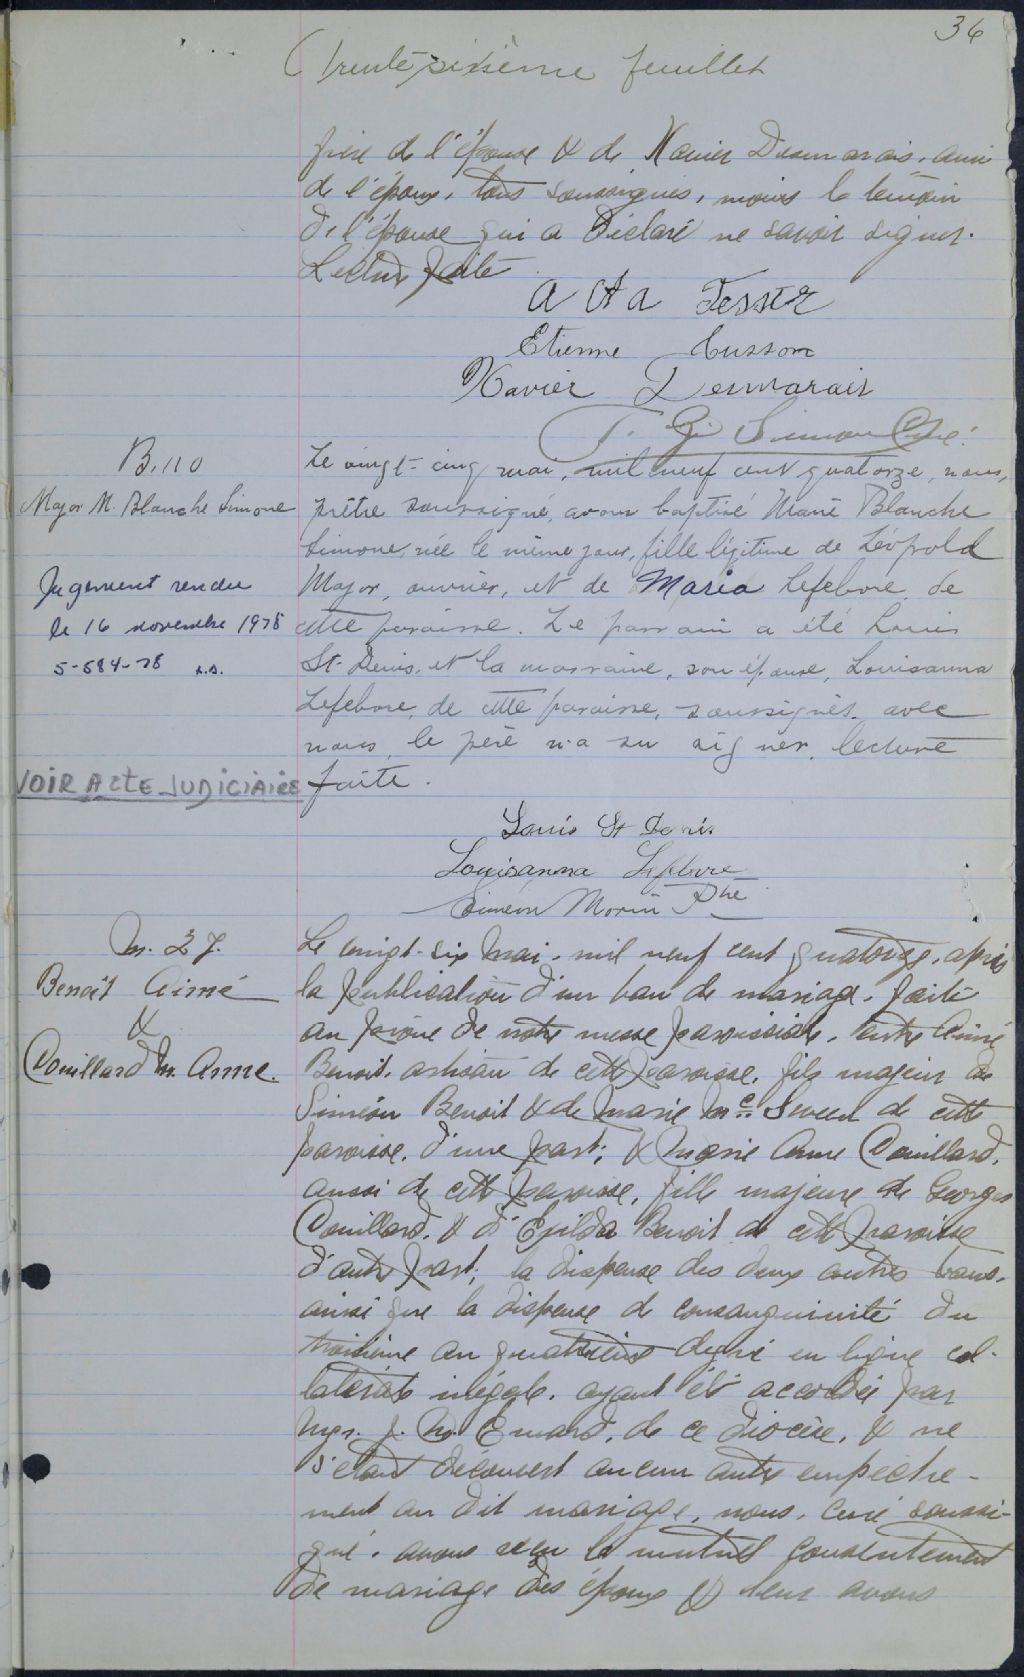 36
Trente sixième feuillet
frère de l'épouse & de Xavier Desmarais, ami
de l'époux, tous soussignés, moins le témoin
de l'épouse qui a déclaré ne savoir signer.
Lecture faite
Etienne Cusson
Xavier Desmarais
B. 110
Major M. Blanche Simone
Jugement rendu
le 16 novembre 1978
5-584-78
VOIR ACTE JUDICIAIRE
Le vingt-cinq mai, mil neuf cent quatorze, nous,
prêtre soussigné, avons baptisé Marie Blanche
Simone, née le même jour, fille légitime de Léopold
Major, ouvrier, et de Maria Lefebvre, de
cette paroisse. Le parrain a été Louis
St-Denis, et la marraine, son épouse, Louisanna
Lefebvre, de cette paroisse, soussignés avec
nous, le père n'a su signer. lecture
faite.
Louis St Denis
Louisanna Lefebvre
Siméon Morin Ptre
M. 27.
Benoit Aimé
&
Couillard M. Anne.
Le vingt-six mai, mil neuf cent quatorze, après
la publication d'un ban de mariage, faite
au prône de notre messe paroissiale, entre Aimé
Benoit, artisan de cette paroisse, fils majeur de
Siméon Benoit & de Marie Mc Sween de cette
paroisse, d'une part; & Marie Anne Couillard,
aussi de cette paroisse, fille majeure de Georges
Couillard, & d'Exilda Benoit de cette paroisse
d'autre part; la dispense des deux autres bans,
ainsi que la dispense de consanguinité du
troisième au quatrième degré en ligne col-
latérale inégale, ayant été accordée par
Mgr. J. M. Emard, de ce diocèse, & ne
s'étant découvert aucun autre empêche-
ment au dit mariage, nous, curé soussi-
gné, avons reçu le mutuel consentement
de mariage des époux & leur avons